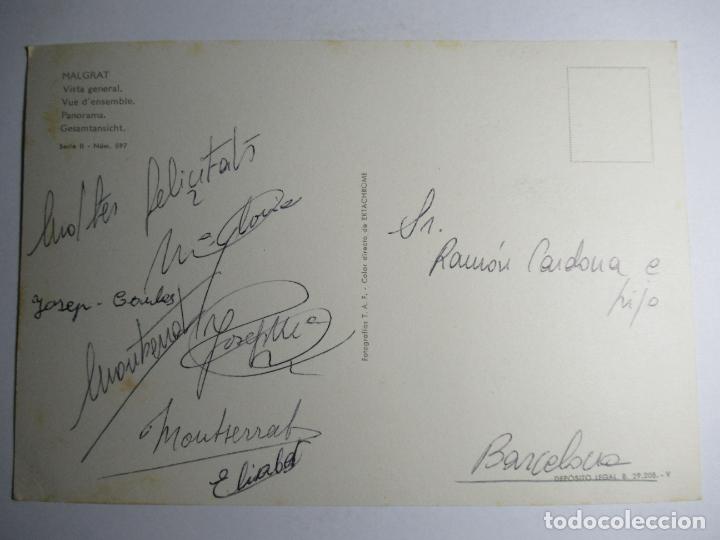 MALGRAT
Vista general.
Vue d'ensemble.
Panorama.
Gesamtansicht.
Serie II - Núm. 597
Moltes felicitats
Mª Gloria
Josep - Carles
Montserrat
Josep Mª
Montserrat
Elisabet
Fotografías T. A. F. - Color directo de EKTACHROME
Sr.
Ramón Cardona e
hijo
Barcelona
DEPÓSITO LEGAL B. 29.208. - V
todocoleccion.net